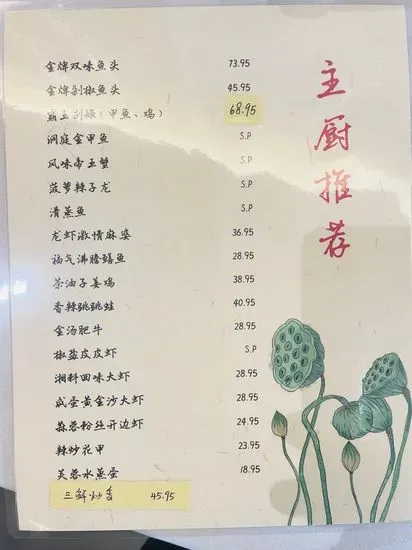 主厨推荐
金牌双味鱼头 73.95
金牌剁椒鱼头 45.95
霸王别姬(甲鱼、鸡) 68.95
洞庭金甲鱼 S.P
风味帝王蟹 S.P
菠萝辣子龙 S.P
清蒸鱼 S.P
龙虾激情麻婆 36.95
福气沸腾鳝鱼 28.95
茶油子姜鸡 38.95
香辣跳跳蛙 40.95
金汤肥牛 28.95
椒盐皮皮虾 S.P
湘料回味大虾 28.95
咸蛋黄金沙大虾 28.95
蒜蓉粉丝开边虾 24.95
辣炒花甲 23.95
芙蓉水蒸蛋 18.95
三鲜炒 45.95